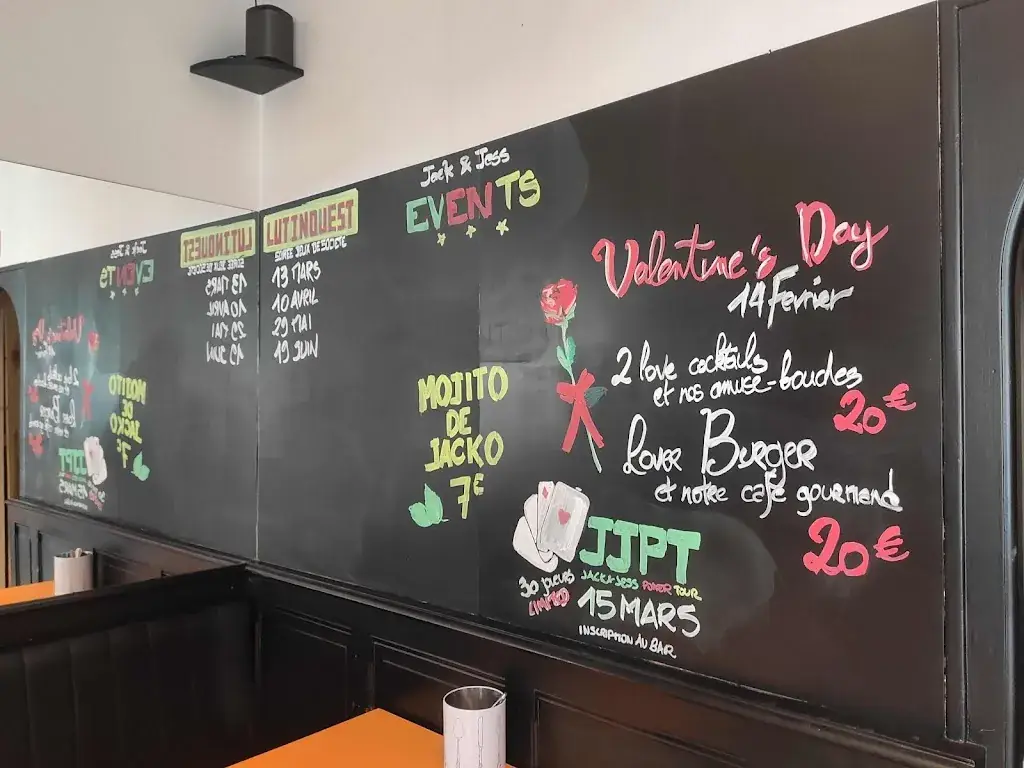 LUTINQUEST
SOIRÉE JEUX DE SOCIÉTÉ
13 MARS
10 AVRIL
29 MAI
19 JUIN
Jack & Jess
EVENTS
MOJITO
DE
JACKO
7€
Valentine's Day
14 Fevrier
2 love cocktails
et nos amuse-bouches
20€
Lover Burger
et notre café gourmand
20€
JJPT
JACK & JESS POKER TOUR
30 joueurs
LIMITED
15 MARS
INSCRIPTION AU BAR